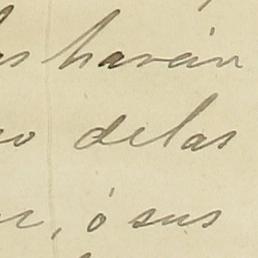 harán
delas
, ó sus